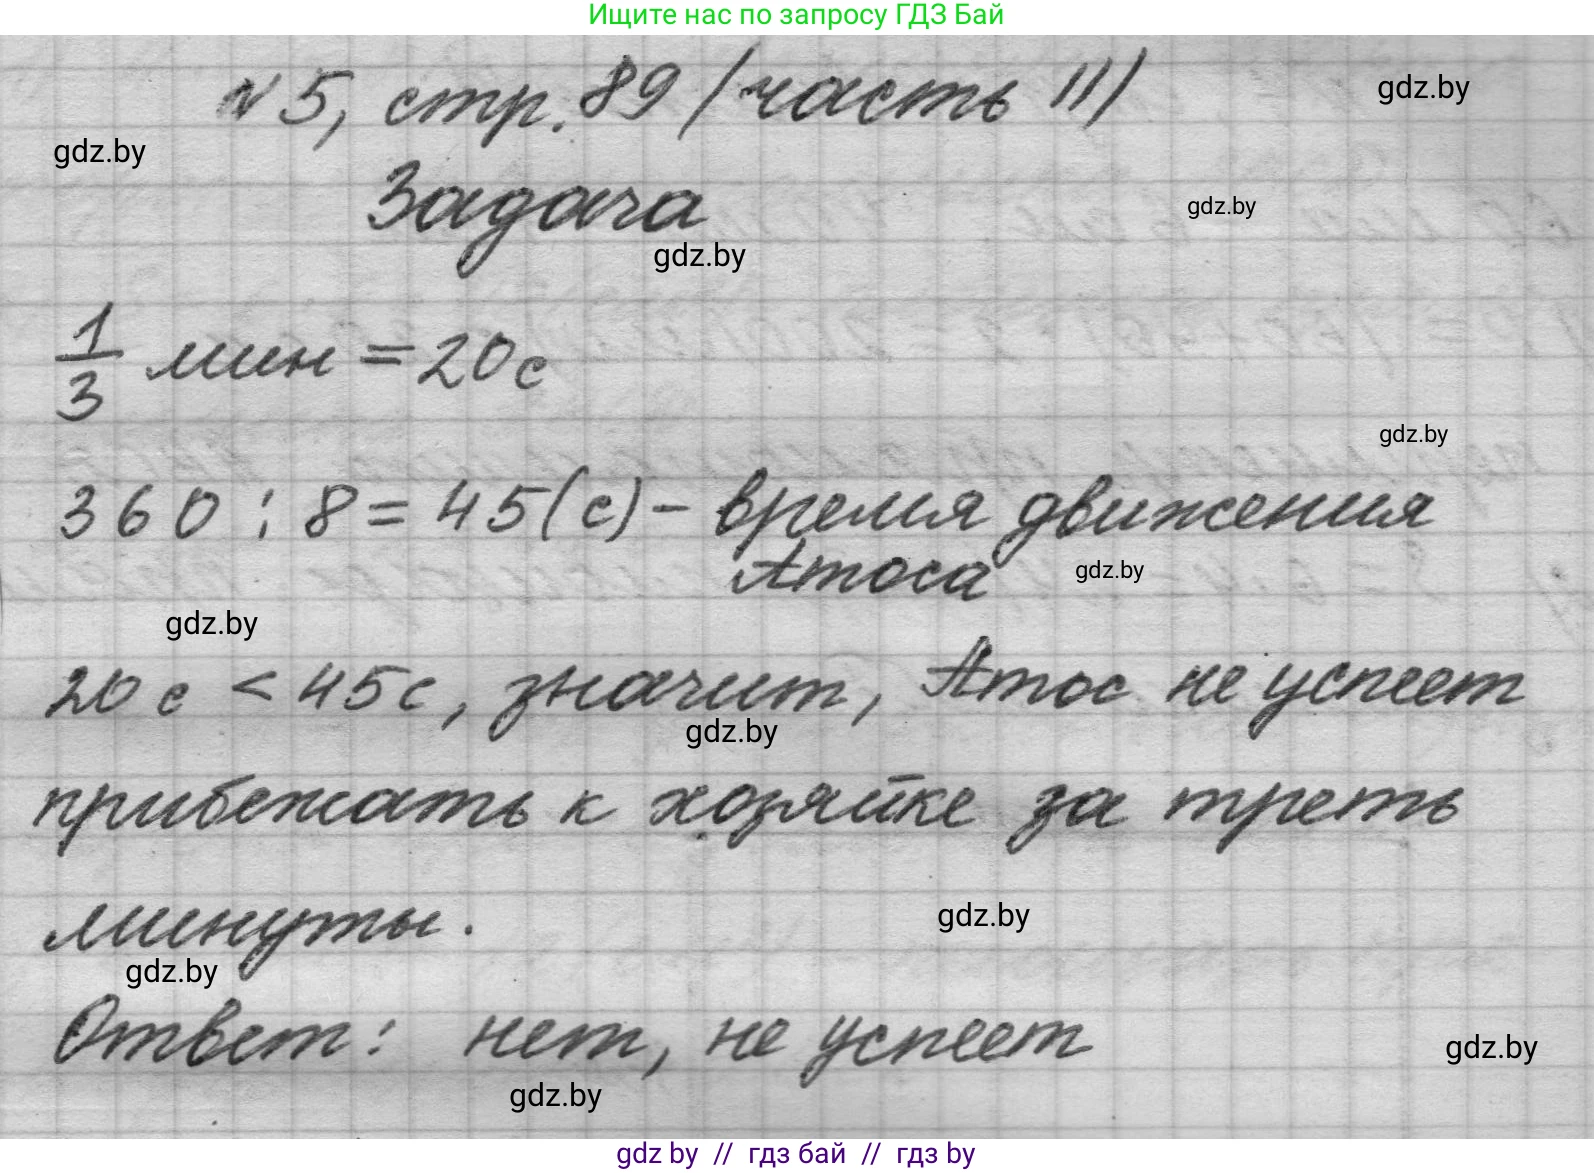 Ищите нас по запросу ГДЗ Бай
№5, стр. 89 (часть II)
gdz.by
gdz.by
Задача
gdz.by
gdz.by
1/3 мин = 20 с
gdz.by
360 : 8 = 45 (с) – время движения
Атоса
gdz.by
gdz.by
20 с < 45 с, значит, Атос не успеет
gdz.by
прибежать к хозяйке за треть
минуты.
gdz.by
gdz.by
Ответ: нет, не успеет
gdz.by
gdz.by
gdz by // гдз бай // гдз by